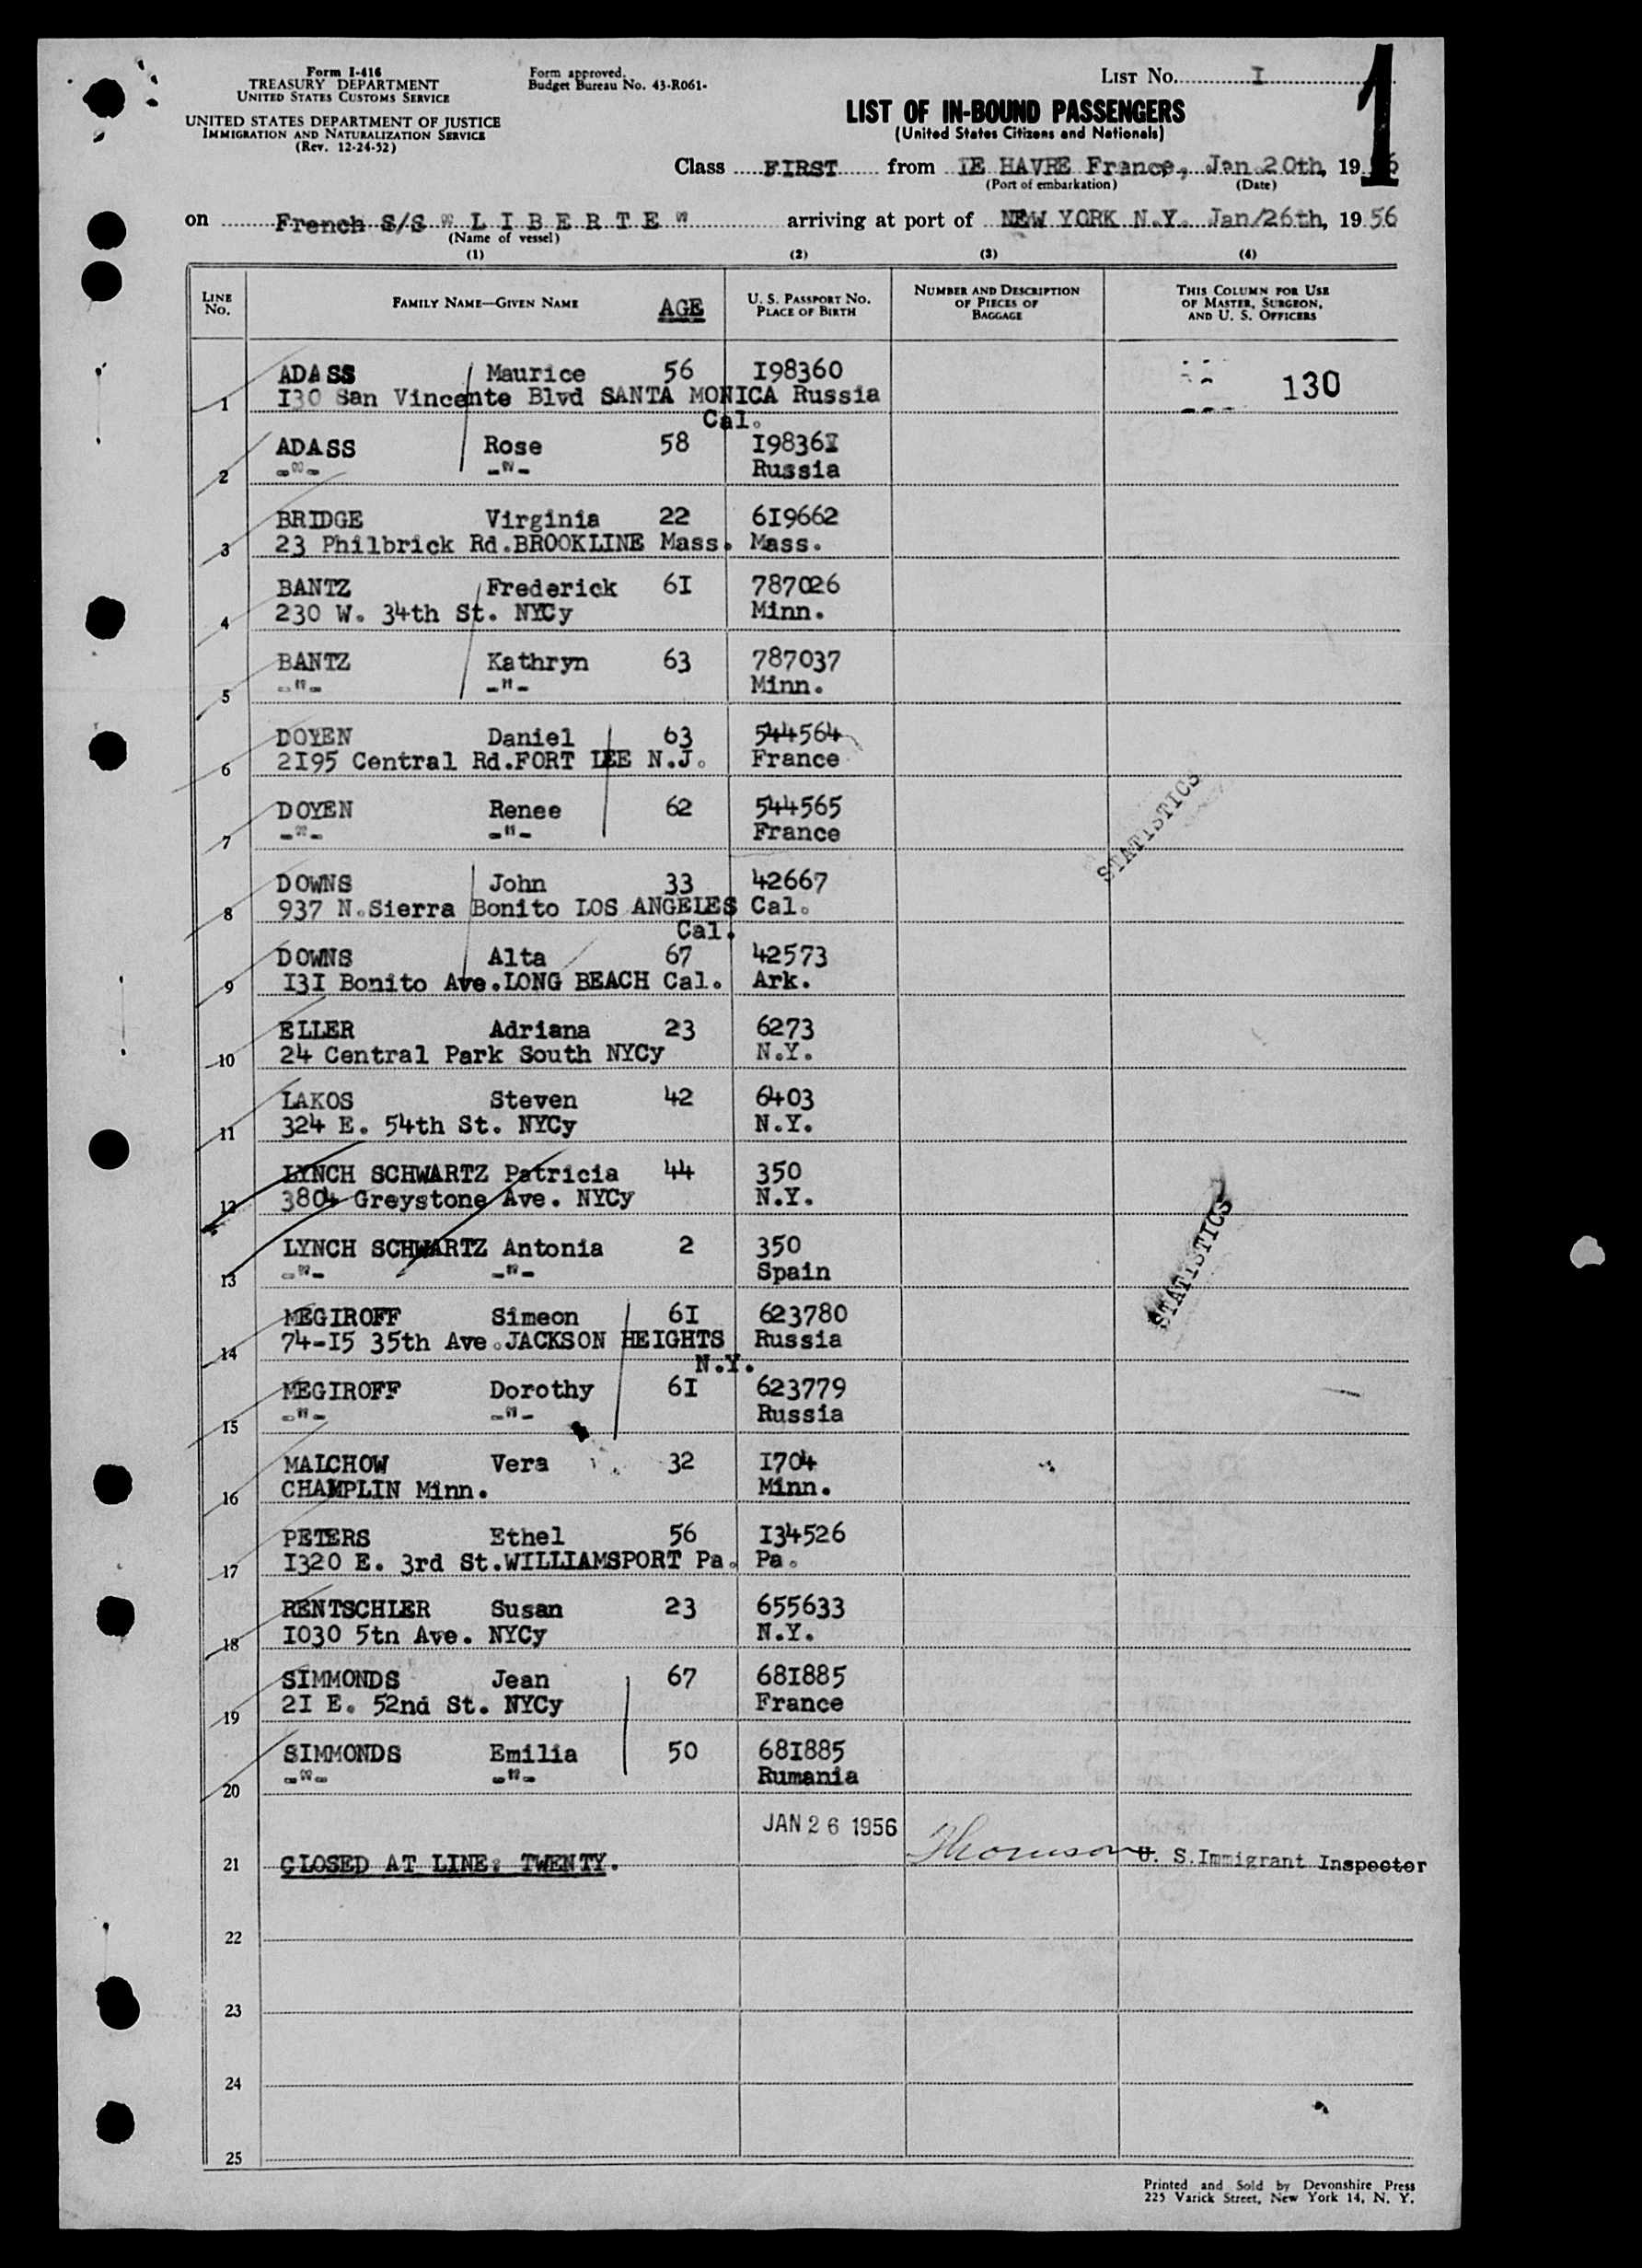 Form I-416
TREASURY DEPARTMENT
UNITED STATES CUSTOMS SERVICE
UNITED STATES DEPARTMENT OF JUSTICE
IMMIGRATION AND NATURALIZATION SERVICE
(Rev. 12-24-52)
Form approved.
Budget Bureau No. 43-R061-
LIST No. I
1
LIST OF IN-BOUND PASSENGERS
(United States Citizens and Nationals)
Class FIRST from LE HAVRE France, Jan 20th, 1956
(Port of embarkation) (Date)
on French S/S " L I B E R T E " arriving at port of NEW YORK N.Y. Jan/26th, 1956
(Name of vessel)
(1) (2) (3) (4)
LINE No. FAMILY NAME—GIVEN NAME AGE U. S. PASSPORT No. PLACE OF BIRTH NUMBER AND DESCRIPTION OF PIECES OF BAGGAGE THIS COLUMN FOR USE OF MASTER, SURGEON, AND U. S. OFFICERS
ADASS Maurice 56 I98360 130
1 I30 San Vincente Blvd SANTA MONICA Russia
Cal.
ADASS Rose 58 I9836I
2 -"- -"- Russia
BRIDGE Virginia 22 6I9662
3 23 Philbrick Rd.BROOKLINE Mass. Mass.
BANTZ Frederick 6I 787026
4 230 W. 34th St. NYCy Minn.
BANTZ Kathryn 63 787037
5 -"- -"- Minn.
DOYEN Daniel 63 544564
6 2I95 Central Rd.FORT LEE N.J. France
DOYEN Renee 62 544565
7 -"- -"- France
STATISTICS
DOWNS John 33 42667
8 937 N.Sierra Bonito LOS ANGELES Cal.
Cal.
DOWNS Alta 67 42573
9 I3I Bonito Ave.LONG BEACH Cal. Ark.
ELLER Adriana 23 6273
10 24 Central Park South NYCy N.Y.
LAKOS Steven 42 6403
11 324 E. 54th St. NYCy N.Y.
LYNCH SCHWARTZ Patricia 44 350
12 3804 Greystone Ave. NYCy N.Y.
LYNCH SCHWARTZ Antonia 2 350
13 -"- -"- Spain
STATISTICS
MEGIROFF Simeon 6I 623780
14 74-I5 35th Ave.JACKSON HEIGHTS Russia
N.Y.
MEGIROFF Dorothy 6I 623779
15 -"- -"- Russia
MALCHOW Vera 32 I704
16 CHAMPLIN Minn. Minn.
PETERS Ethel 56 I34526
17 I320 E. 3rd St.WILLIAMSPORT Pa. Pa.
RENTSCHLER Susan 23 655633
18 I030 5tn Ave. NYCy N.Y.
SIMMONDS Jean 67 68I885
19 2I E. 52nd St. NYCy France
SIMMONDS Emilia 50 68I885
20 -"- -"- Rumania
JAN 26 1956
21 CLOSED AT LINE: TWENTY. Thomson U. S.Immigrant Inspector
22
23
24
25
Printed and Sold by Devonshire Press
225 Varick Street, New York 14, N. Y.